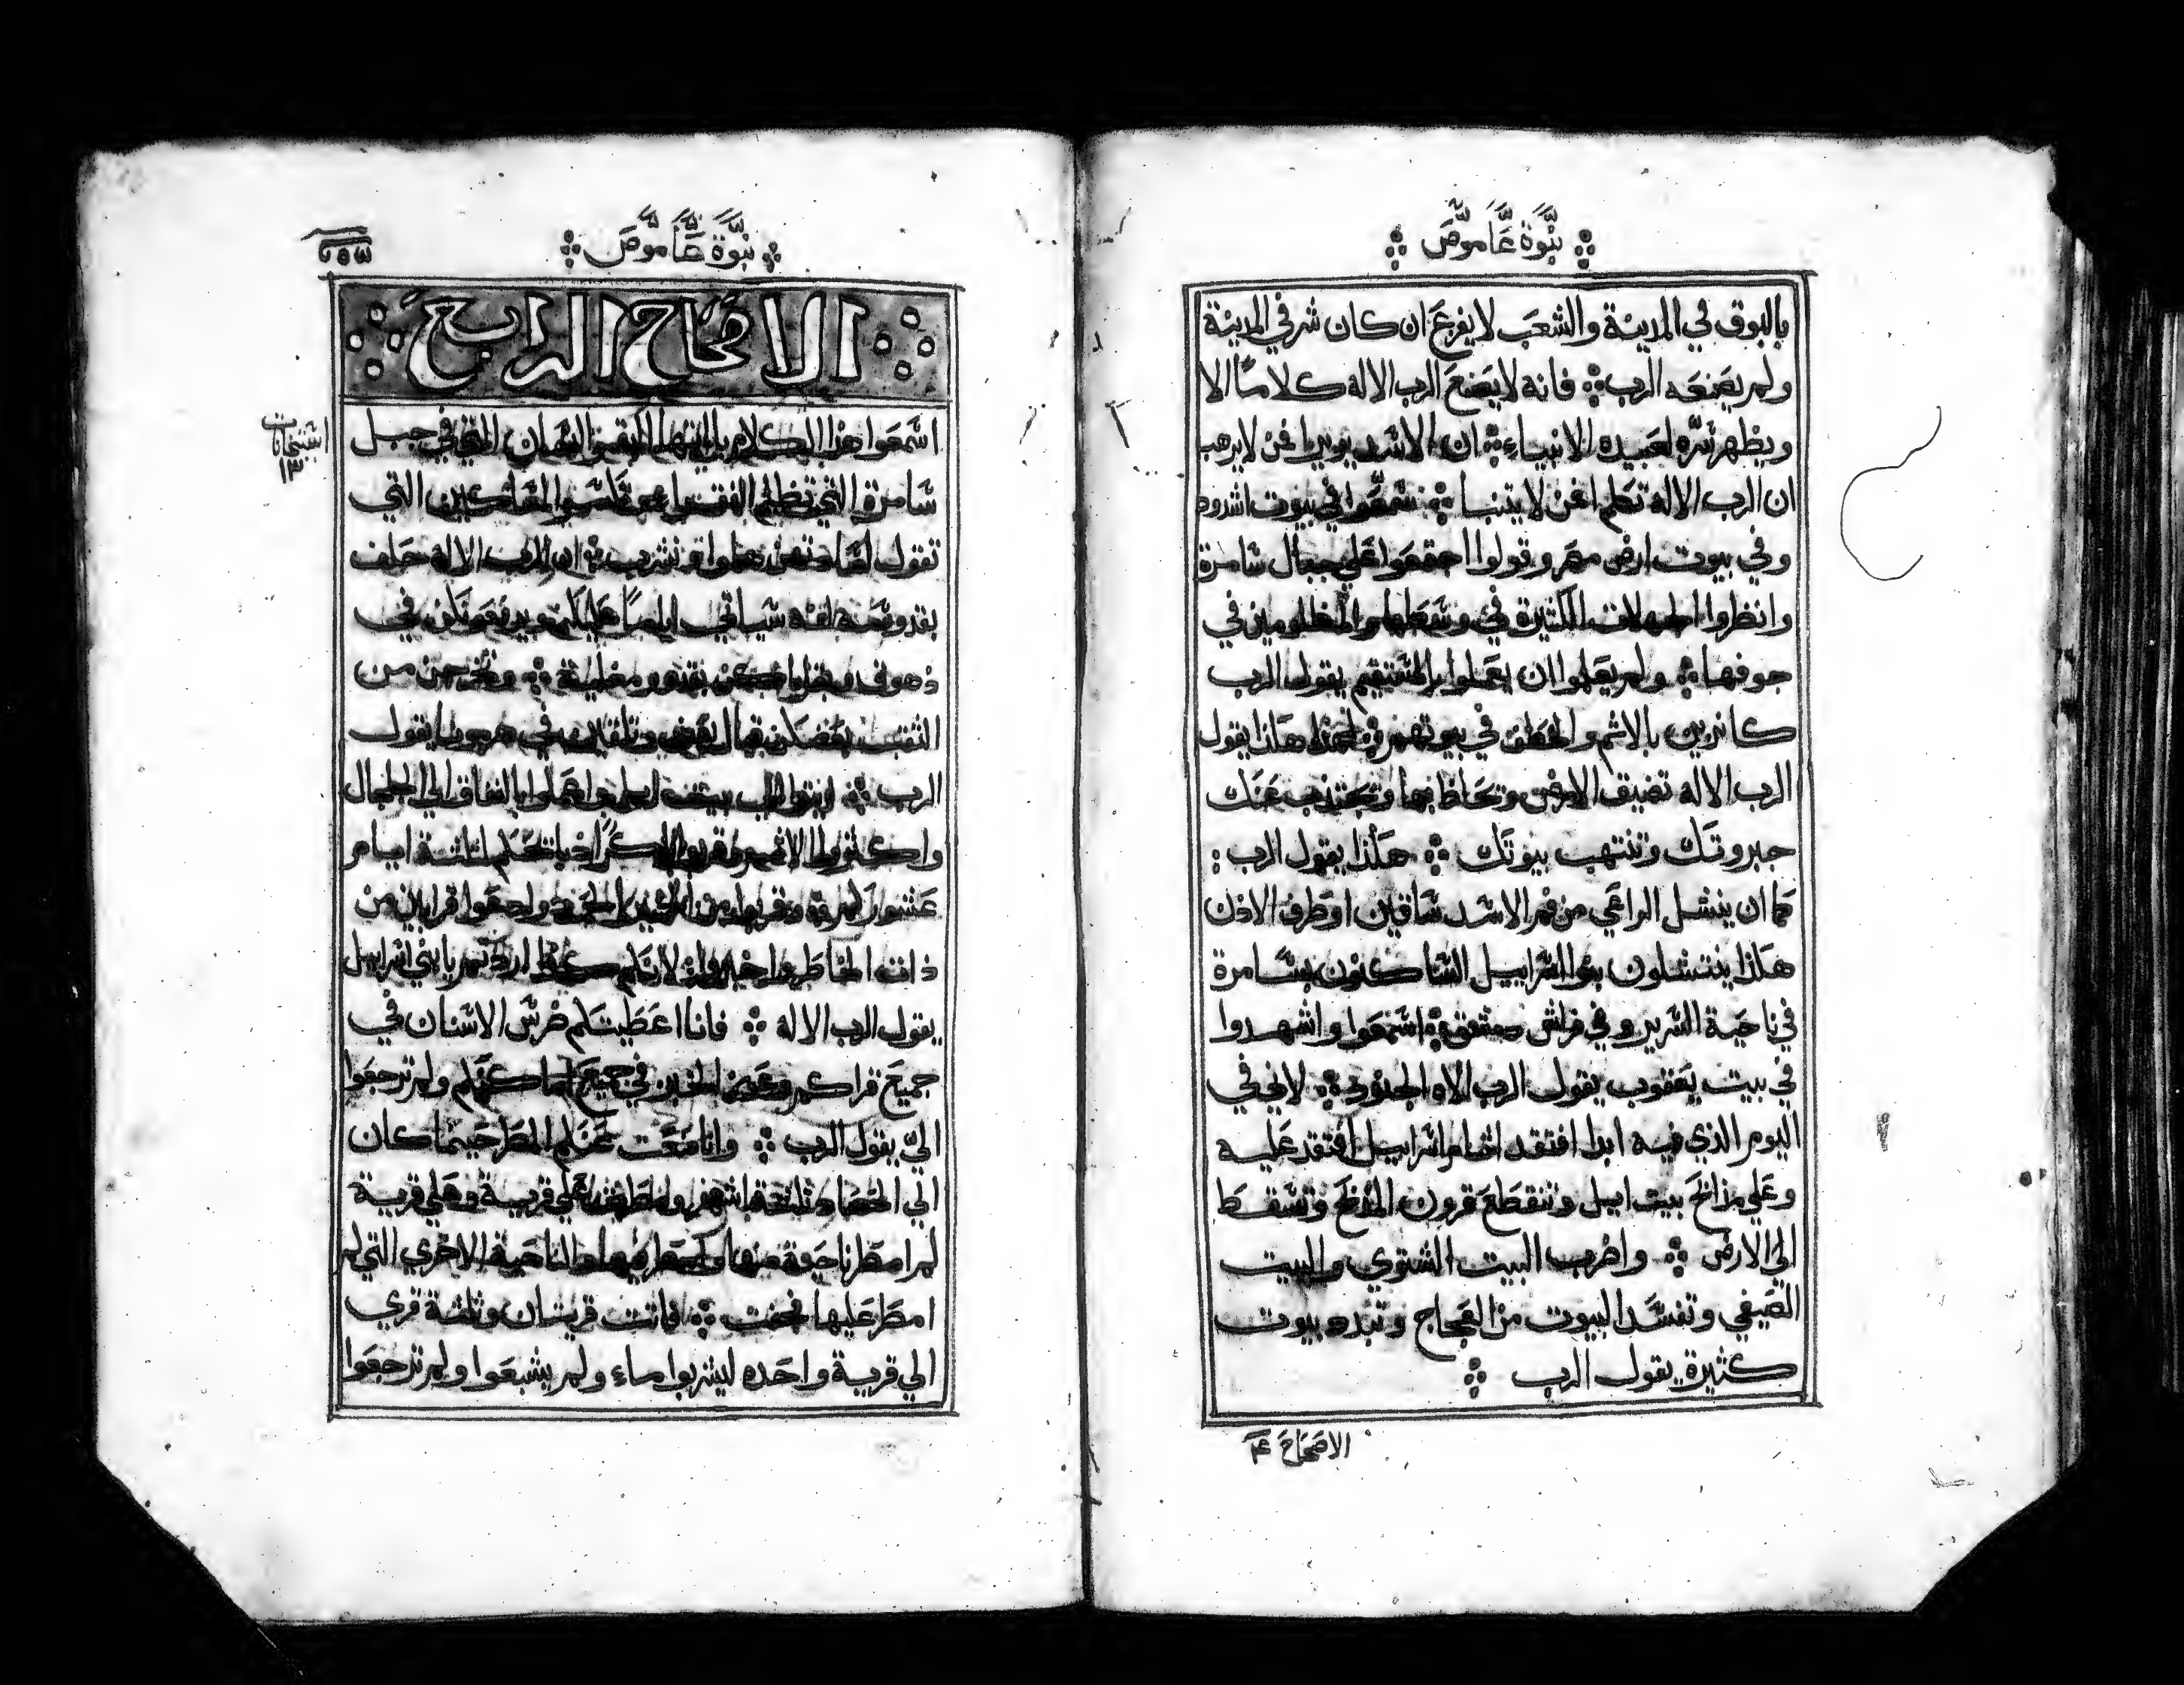 نبوة عاموص
بالبوق في المدينة والشعب لا يفزع ان كان شر في المدينة
ولم يصنعه الرب فانه لا يصنع الرب الاله كلاما الا
ويظهر سره لعبيده الانبياء ان الاسد يزير فمن لا يرهب
ان الرب الاله تكلم فمن لا يتنبا سمعوا في بيوت اشدود
وفي بيوت ارض مصر وقولوا اجتمعوا علي جبال سامرة
وانظروا الجهالات الكثيرة في وسطها والمظلومين في
جوفها ولم يعلموا ان يعملوا المستقيم يقول الرب
كانزين بالاثم والخطف في بيوتهم لهذا هكذا يقول
الرب الاله تضيق الارض وتحاط بها وتجتذب عنك
جبروتك وتنتهب بيوتك هكذا يقول الرب
كما ان ينشل الراعي من فم الاسد ساقين او طرف الاذن
هكذا ينتشلون بنو اسراييل الساكنون بسامرة
في ناحية السرير وفي فراش دمشق اسمعوا واشهدوا
في بيت يعقوب يقول الرب الاه الجنود لاني في
اليوم الذي فيه ابدا افتقد اثام اسراييل افتقد عليه
وعلي مذابح بيت ايل وتنقطع قرون المذبح وتسقط
الي الارض واضرب البيت الشتوي والبيت
الصيفي وتفسد البيوت من العجاج وتبدد بيوت
كثيرة يقول الرب
الاصحاح ٤
نبوة عاموص
الاصحاح الرابع
اسمعوا هذا الكلام يا ايتها البقر السمان التي في جبل
سامرة التي تظلم الفقرا المساكين التي
تقول لساداتهن هلموا ونشرب ان الرب الاله حلف
بقدوسه انه سياتي ايام عليكم ويرفعونكن في
ومغلية وتخرجن من
يقول
الرب بيت ايل واعملوا بالنفاق الي الجلجال
واكثروا الاثم وقربوا ثلثة ايام
عشوركم وقربوا من الخمير وادعوا قرابين من
ذات الخاطر واخبروا لانكم هكذا اردتم يا بني اسراييل
يقول الرب الاله فانا اعطيتكم ضرس الاسنان في
جميع قراكم وعوز الخبز في جميع اماكنكم ولم ترجعوا
الي يقول الرب وانا منعت عنكم المطر حينما كان
الي الحصاد ثلثة اشهر علي قرية وعلي قرية
لم امطر ناحية منها والناحية الاخري التي لم
امطر عليها نجفت فاتت قريتان وثلثة قري
الي قرية واحده ليشربوا ماء ولم يشبعوا ولم ترجعوا